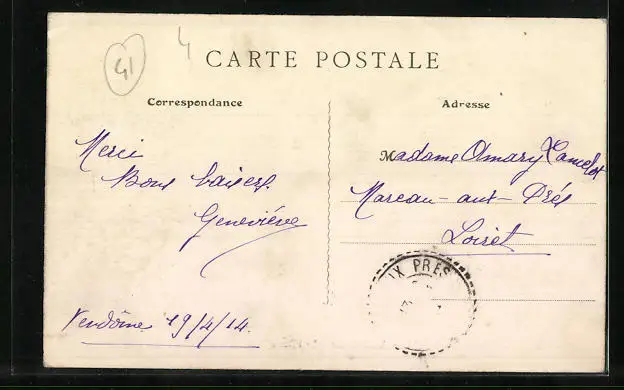 41
4
CARTE POSTALE
Correspondance
Adresse
Merci
Bons baisers
Geneviève
Vendôme 19/4/14.
Madame Amary Lancelot
Mareau-aux-Prés
Loiret
UX PRES